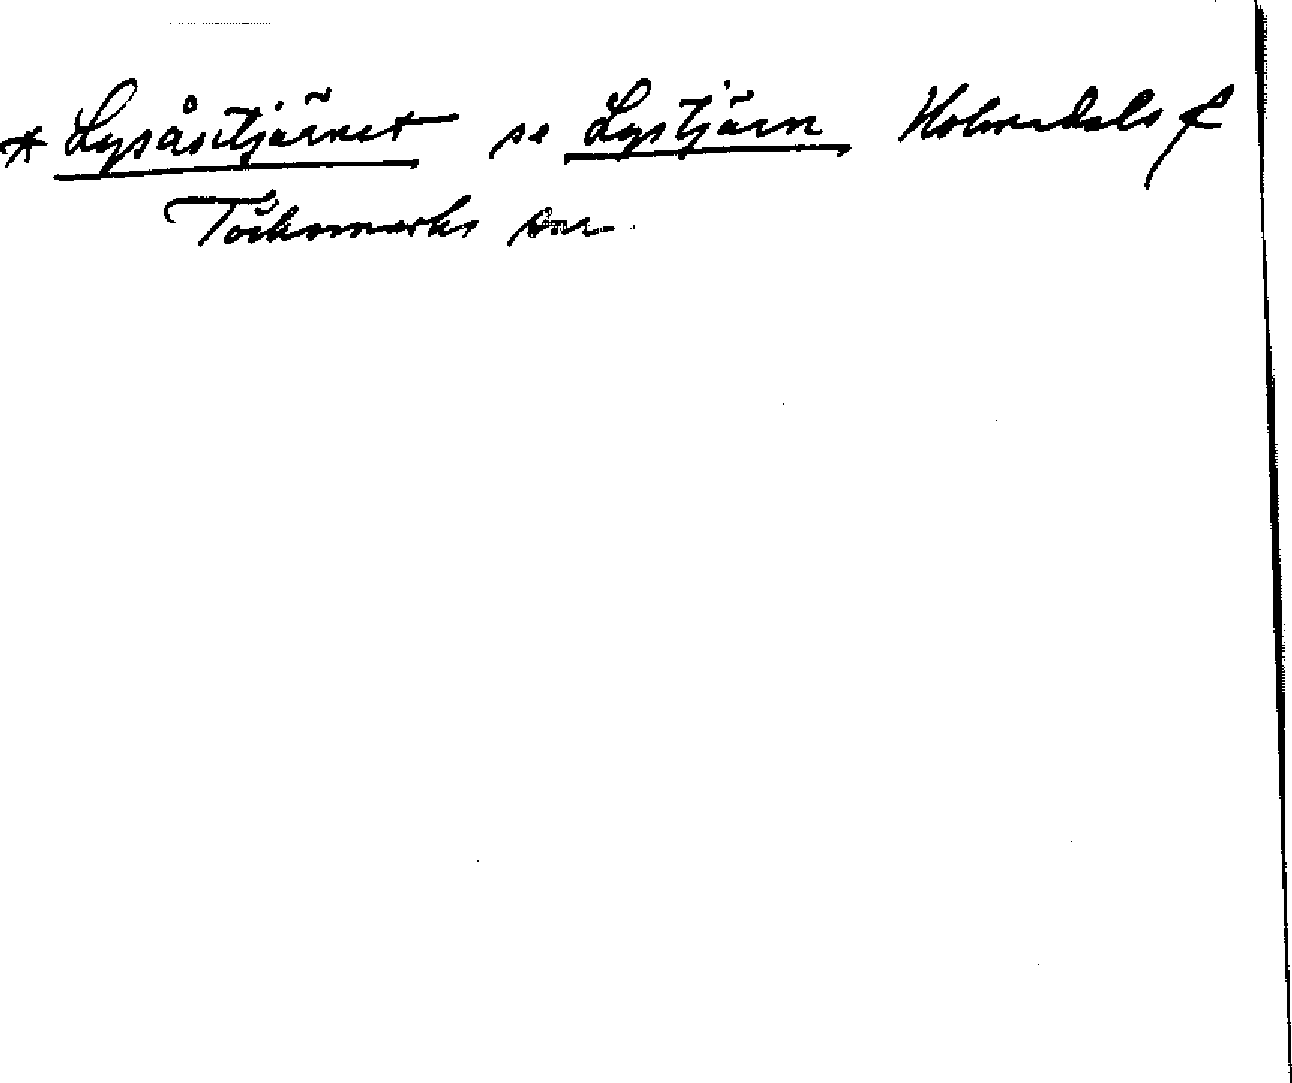 * Lysåstjärnet se Lystjärn Holmedals f
Töcksmarks sn